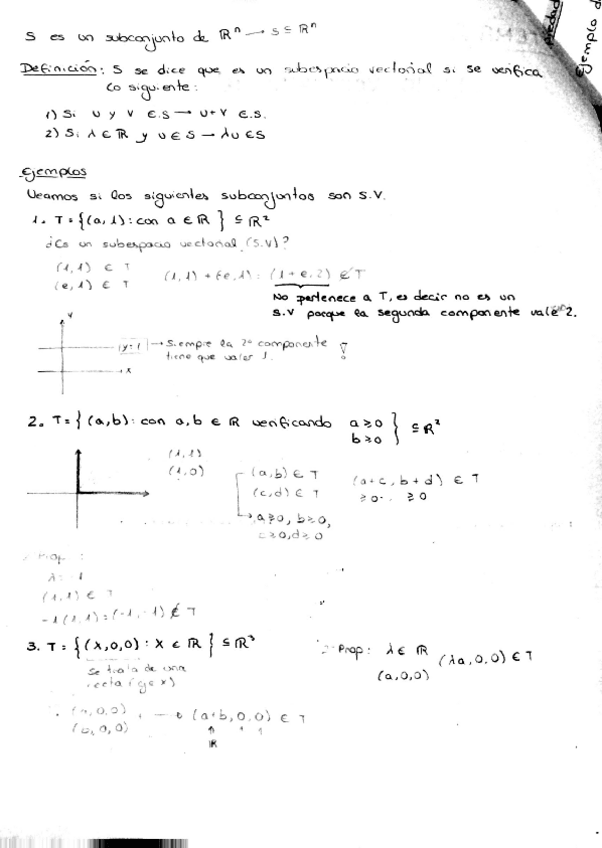 S es un subconjunto de ℝⁿ → S ⊆ ℝⁿ
Definición: S se dice que es un subespacio vectorial si se verifica
lo siguiente:
1) Si u y v ∈ S → u+v ∈ S.
2) Si λ ∈ ℝ y u ∈ S → λu ∈ S
Ejemplos
Veamos si los siguientes subconjuntos son S.V.
1. T = {(a, 1) : con a ∈ ℝ } ⊆ ℝ²
¿Es un subespacio vectorial (S.V)?
(1, 1) ∈ T
(e, 1) ∈ T
(1, 1) + (e, 1) = (1+e, 2) ∉ T
No pertenece a T, es decir no es un
S.V porque la segunda componente vale 2.
y
y=1 → Siempre la 2ª componente
tiene que valer 1. !
x
2. T = { (a, b) : con a, b ∈ ℝ verificando a ≥ 0 } ⊆ ℝ²
b ≥ 0
(1, 1)
(1, 0)
(a, b) ∈ T
(c, d) ∈ T
(a+c, b+d) ∈ T
≥ 0 ≥ 0
a ≥ 0, b ≥ 0,
c ≥ 0, d ≥ 0
Prop :
λ = -1
(1, 1) ∈ T
-1 (1, 1) = (-1, -1) ∉ T
3. T = {(x, 0, 0) : x ∈ ℝ } ⊆ ℝ³
Se trata de una
recta (eje x)
2ª Prop: λ ∈ ℝ
(a, 0, 0)
(λa, 0, 0) ∈ T
(a, 0, 0)
(b, 0, 0)
(a+b, 0, 0) ∈ T
ℝ
Ejemplo